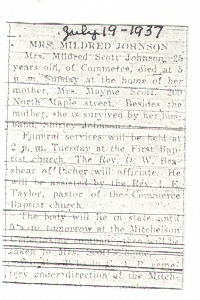 July 19-1937
MRS. MILDRED JOHNSON
Mrs. Mildred Scott Johnson, 25
years old, of Commerce, died at 5
p. m. Sunday at the home of her
mother, Mrs. Mayme Scott, 200
North Maple street. Besides the
mother, she is survived by her hus-
band, Johnson.
Funeral services will be held at
2 p. m. Tuesday at the First Bap-
tist church. The Rev. W. Bra-
shear of Picher will officiate. He
will be assisted by the Rev. I. E.
Taylor, pastor of the Commerce
Baptist church.
The body will lie in state until
tomorrow at the Mitchelson
then will be
taken to Mrs. Scott's
ceme-
tery under direction of the Mitch-